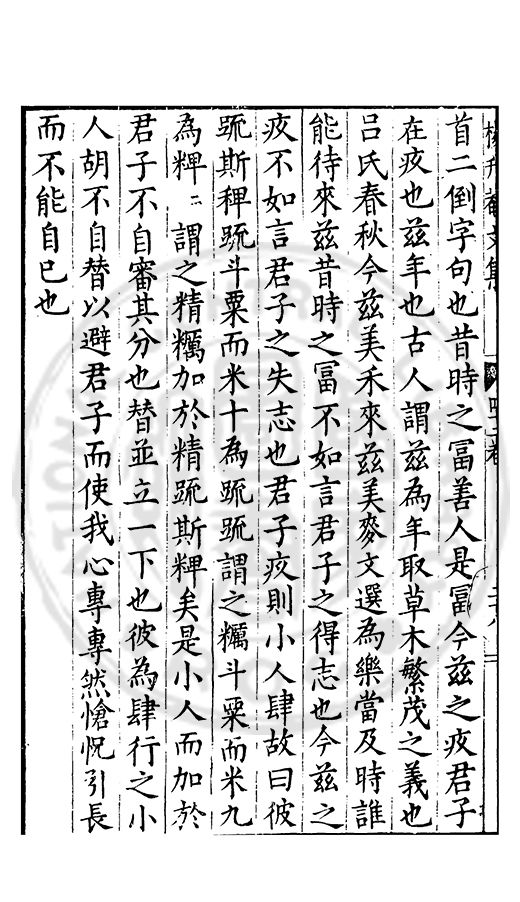 楊升菴文集
首二倒字句也昔時之冨善人是冨今兹之疚君子
在疚也兹年也古人謂兹為年取草木繁茂之義也
呂氏春秋今兹美禾來兹美麥文選為樂當及時誰
能待來兹昔時之冨不如言君子之得志也今兹之
疚不如言君子之失志也君子疚則小人肆故曰彼
䟽斯稗䟽斗粟而米十為䟽䟽謂之糲斗粟而米九
為粺〻謂之精糲加於精䟽斯粺矣是小人而加於
君子不自審其分也替並立一下也彼為肆行之小
人胡不自替以避君子而使我心專專然愴怳引長
而不能自已也